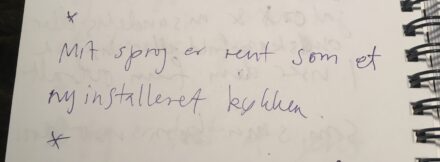 *
Mit sprog er rent som et
nyinstalleret køkken.
*